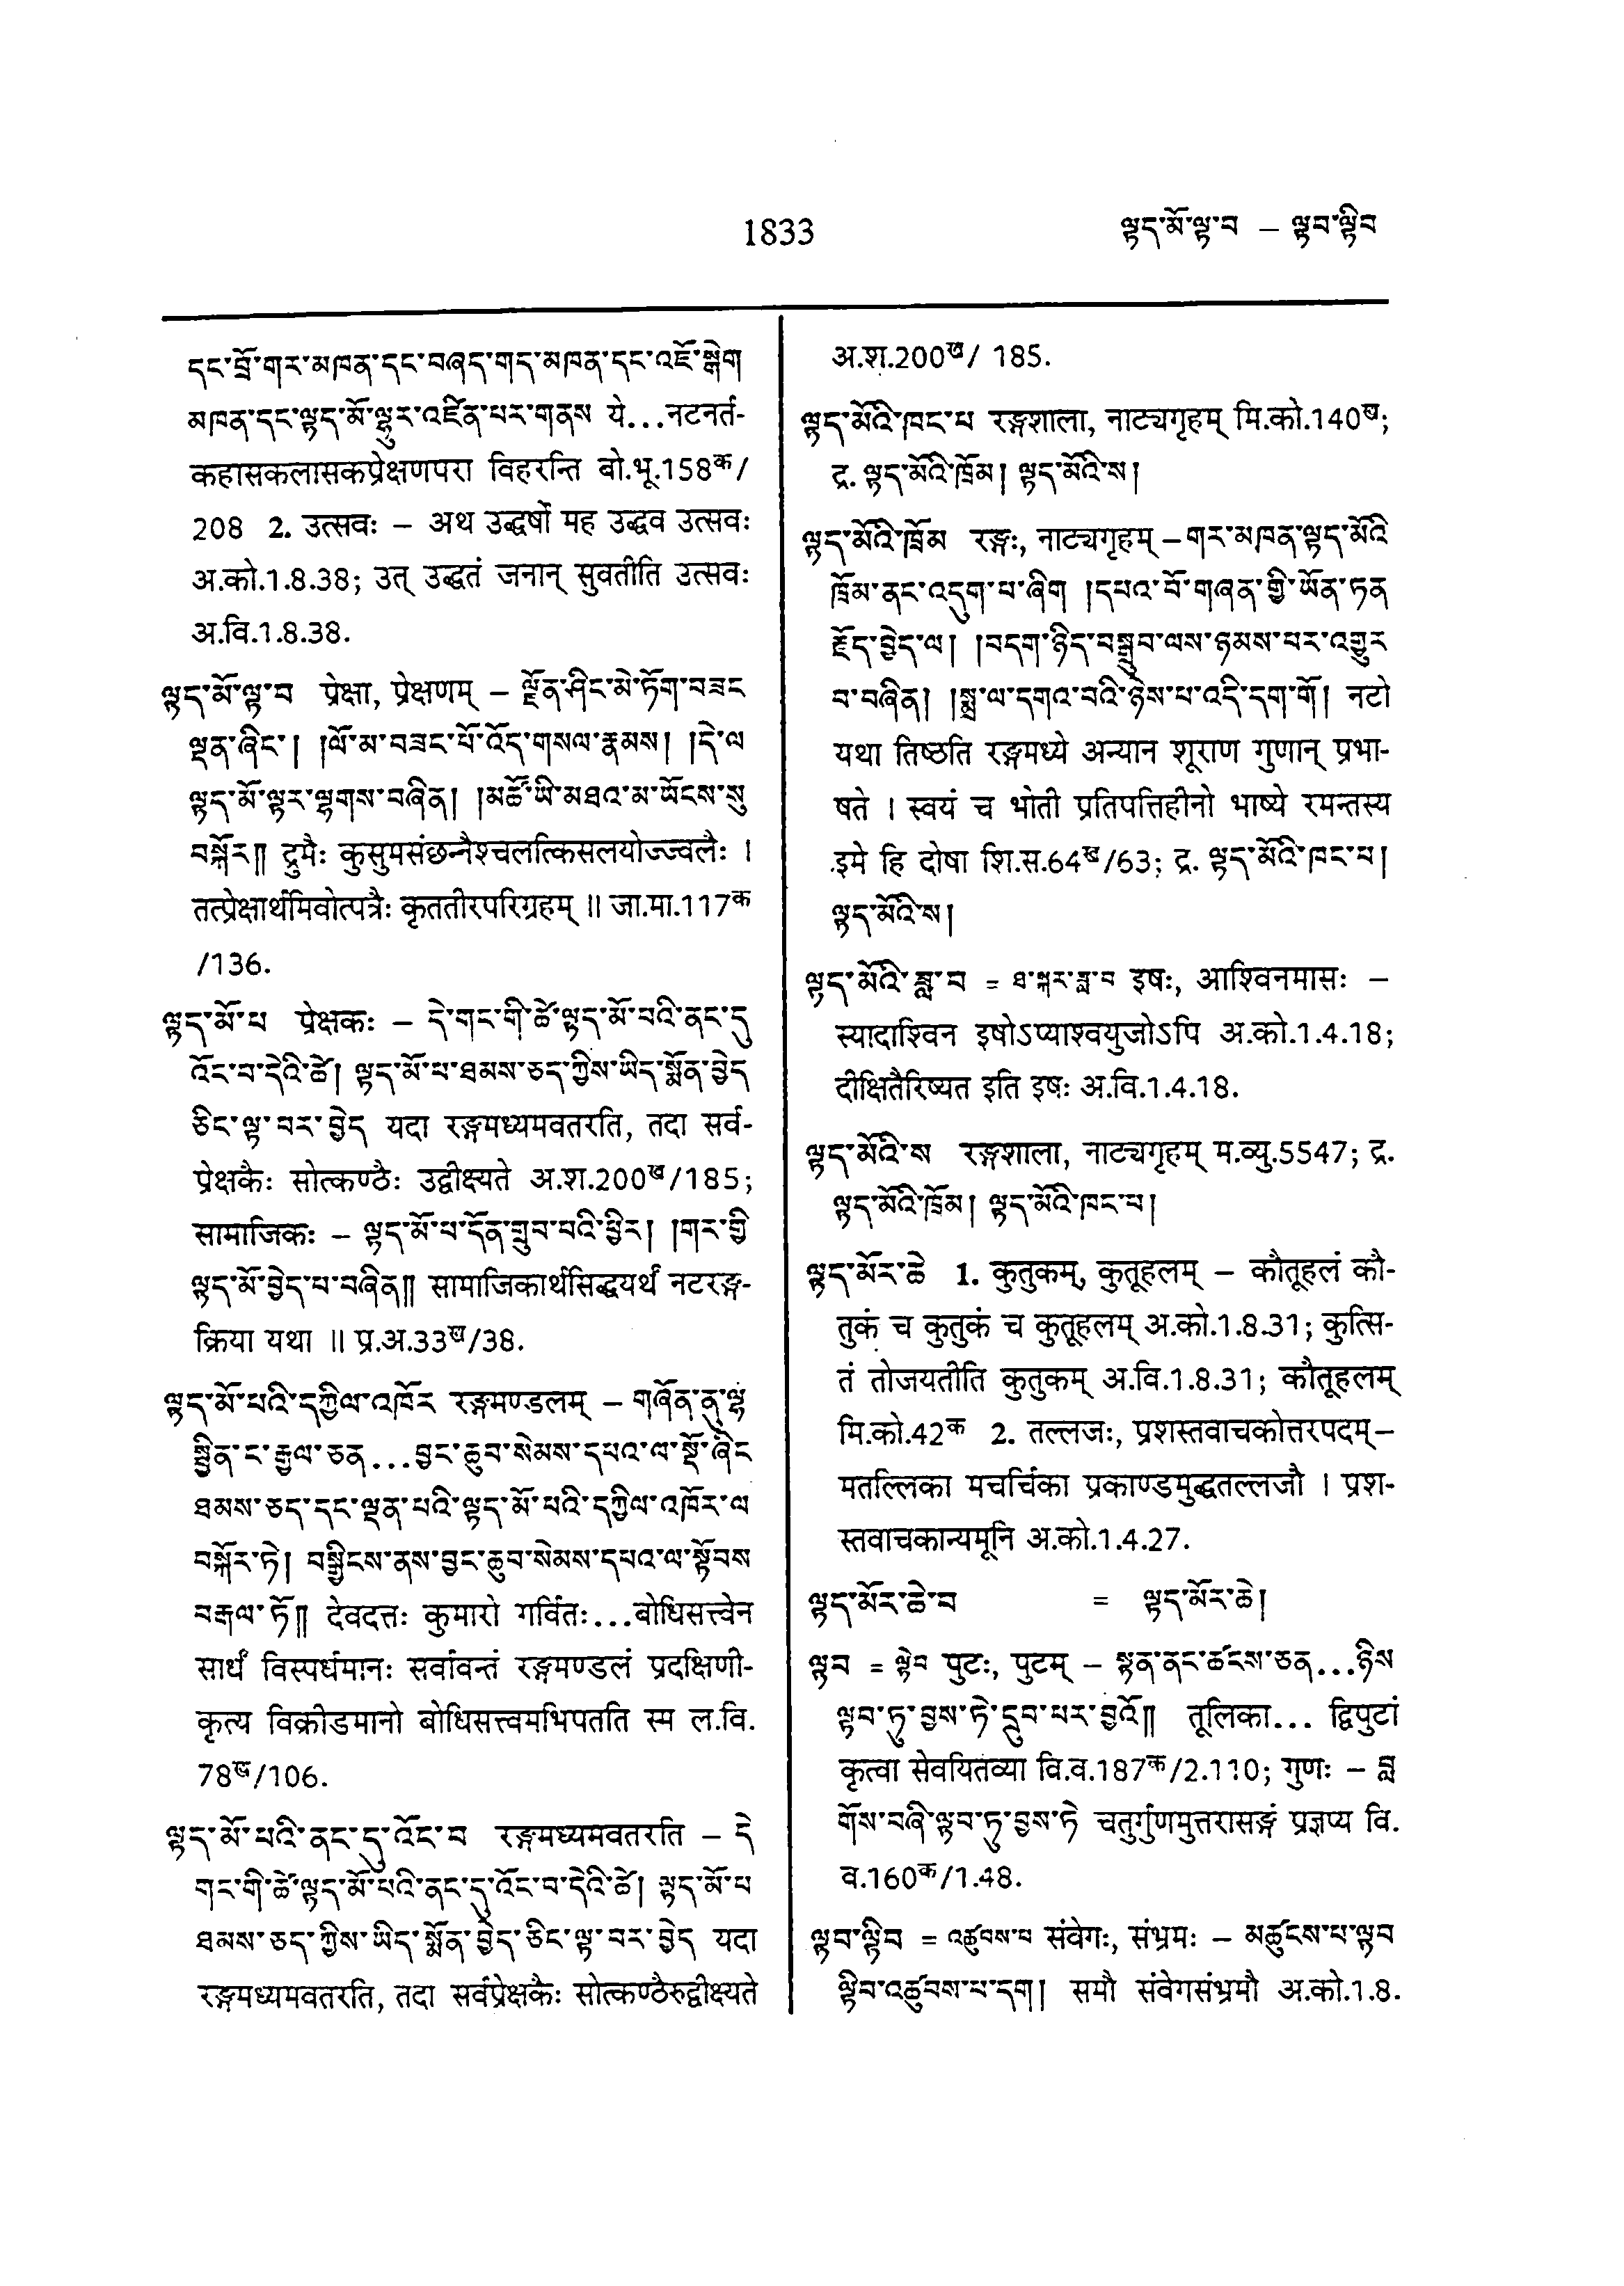 1833
ལྟད་མོ་ལྟ་བ – ལྟབ་ལྟིབ
དང་བྲོ་གར་མཁན་དང་བཞད་གད་མཁན་དང་འཇོ་སྒེག
མཁན་དང་ལྟད་མོ་ལྷུར་འཛིན་པར་གནས ये...नटनर्त-
कहासकलासकप्रेक्षणपरा विहरन्ति बो.भू.158क/
208 2. उत्सवः – अथ उद्धर्षो मह उद्धव उत्सवः
अ.को.1.8.38; उत् उद्धतं जनान् सुवतीति उत्सवः
अ.वि.1.8.38.
ལྟད་མོ་ལྟ་བ प्रेक्षा, प्रेक्षणम् – ལྗོན་ཤིང་མེ་ཏོག་བཟང
ལྡན་ཞིང་། །ལོ་མ་བཟང་པོ་འོད་གསལ་རྣམས། །དེ་ལ
ལྟད་མོ་ལྟར་ལྷགས་བཞིན། །མཚོ་ཡི་མཐའ་མ་ཡོངས་སུ
བསྐོར།། द्रुमैः कुसुमसंछन्नैश्चलत्किसलयोज्ज्वलैः ।
तत्प्रेक्षार्थमिवोत्पत्रैः कृततीरपरिग्रहम् ॥ जा.मा.117क
/136.
ལྟད་མོ་པ प्रेक्षकः – དེ་གང་གི་ཚེ་ལྟད་མོ་བའི་ནང་དུ
འོང་བ་དེའི་ཚེ། ལྟད་མོ་པ་ཐམས་ཅད་ཀྱིས་ཡིད་སྨོན་བྱེད
ཅིང་ལྟ་བར་བྱེད यदा रङ्गमध्यमवतरति, तदा सर्व-
प्रेक्षकैः सोत्कण्ठैः उद्वीक्ष्यते अ.श.200ख/185;
सामाजिकः – ལྟད་མོ་པ་དོན་གྲུབ་པའི་ཕྱིར། །གར་གྱི
ལྟད་མོ་བྱེད་པ་བཞིན།། सामाजिकार्थसिद्ध्यर्थं नटरङ्ग-
क्रिया यथा ॥ प्र.अ.33ख/38.
ལྟད་མོ་པའི་དཀྱིལ་འཁོར रङ्गमण्डलम् – གཞོན་ནུ་ལྷ
སྦྱིན་ང་རྒྱལ་ཅན...བྱང་ཆུབ་སེམས་དཔའ་ལ་སྡོ་ཞིང
ཐམས་ཅད་དང་ལྡན་པའི་ལྟད་མོ་པའི་དཀྱིལ་འཁོར་ལ
བསྐོར་ཏེ། བསྒྱིངས་ནས་བྱང་ཆུབ་སེམས་དཔའ་ལ་སྟོབས
བརྒལ་ཏོ།། देवदत्तः कुमारो गर्वितः...बोधिसत्त्वेन
सार्धं विस्पर्धमानः सर्वावन्तं रङ्गमण्डलं प्रदक्षिणी-
कृत्य विक्रीडमानो बोधिसत्त्वमभिपतति स्म ल.वि.
78ख/106.
ལྟད་མོ་པའི་ནང་དུ་འོང་བ रङ्गमध्यमवतरति – དེ
གང་གི་ཚེ་ལྟད་མོ་པའི་ནང་དུ་འོང་བ་དེའི་ཚེ། ལྟད་མོ་པ
ཐམས་ཅད་ཀྱིས་ཡིད་སྨོན་བྱེད་ཅིང་ལྟ་བར་བྱེད यदा
रङ्गमध्यमवतरति, तदा सर्वप्रेक्षकैः सोत्कण्ठैरुद्वीक्ष्यते
अ.श.200ख/ 185.
ལྟད་མོའི་ཁང་པ रङ्गशाला, नाट्यगृहम् मि.को.140ख;
द्र. ལྟད་མོའི་ཁྲོམ། ལྟད་མོའི་ས།
ལྟད་མོའི་ཁྲོམ रङ्गः, नाट्यगृहम् – གར་མཁན་ལྟད་མོའི
ཁྲོམ་ནང་འདུག་པ་ཞིག །དཔའ་བོ་གཞན་གྱི་ཡོན་ཏན
རྗོད་བྱེད་ལ། །བདག་ཉིད་བསྒྲུབ་ལས་ཉམས་པར་འགྱུར
བ་བཞིན། །སྨྲ་ལ་དགའ་བའི་ཉེས་པ་འདི་དག་གོ། नटो
यथा तिष्ठति रङ्गमध्ये अन्यान शूराण गुणान् प्रभा-
षते । स्वयं च भोती प्रतिपत्तिहीनो भाष्ये रमन्तस्य
इमे हि दोषा शि.स.64ख/63; द्र. ལྟད་མོའི་ཁང་པ།
ལྟད་མོའི་ས།
ལྟད་མོའི་ཟླ་བ = ཐ་སྐར་ཟླ་བ इषः, आश्विनमासः –
स्यादाश्विन इषोऽप्याश्वयुजोऽपि अ.को.1.4.18;
दीक्षितैरिष्यत इति इषः अ.वि.1.4.18.
ལྟད་མོའི་ས रङ्गशाला, नाट्यगृहम् म.व्यु.5547; द्र.
ལྟད་མོའི་ཁྲོམ། ལྟད་མོའི་ཁང་པ།
ལྟད་མོར་ཆེ 1. कुतुकम्, कुतूहलम् – कौतूहलं कौ-
तुकं च कुतुकं च कुतूहलम् अ.को.1.8.31; कुत्सि-
तं तोजयतीति कुतुकम् अ.वि.1.8.31; कौतूहलम्
मि.को.42क 2. तल्लजः, प्रशस्तवाचकोत्तरपदम्–
मतल्लिका मचर्चिका प्रकाण्डमुद्धतल्लजौ । प्रश-
स्तवाचकान्यमूनि अ.को.1.4.27.
ལྟད་མོར་ཆེ་བ = ལྟད་མོར་ཆེ།
ལྟབ = ལྟེབ पुटः, पुटम् – སྟན་ནང་ཚངས་ཅན...ཉིས
ལྟབ་ཏུ་བྱས་ཏེ་དྲུབ་པར་བྱའོ།། तूलिका... द्विपुटां
कृत्वा सेवयितव्या वि.व.187क/2.110; गुणः – བླ
གོས་བཞི་ལྟབ་ཏུ་བྱས་ཏེ चतुर्गुणमुत्तरासङ्गं प्रज्ञप्य वि.
व.160क/1.48.
ལྟབ་ལྟིབ = འཚུབས་པ संवेगः, संभ्रमः – མཚུངས་པ་ལྟབ
ལྟིབ་འཚུབས་པ་དག། समौ संवेगसंभ्रमौ अ.को.1.8.